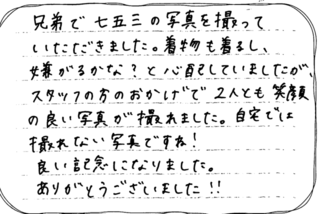 兄弟で七五三の写真を撮って
いただきました。着物も着るし、
嫌がるかな？と心配していましたが、
スタッフの方のおかげで2人とも笑顔
の良い写真が撮れました。自宅では
撮れない写真ですね！
良い記念になりました。
ありがとうございました!!